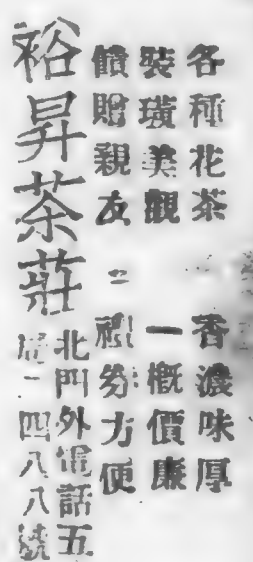 各種花茶 香濃味厚
裝璜美觀 一概價廉
饋贈親友 禮券方便
裕昇茶莊
北門外電話五
局二四八八號